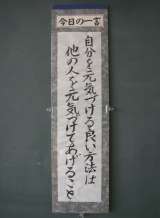 今日の一言
自分を元気づける良い方法は
他の人を元気づけてあげること